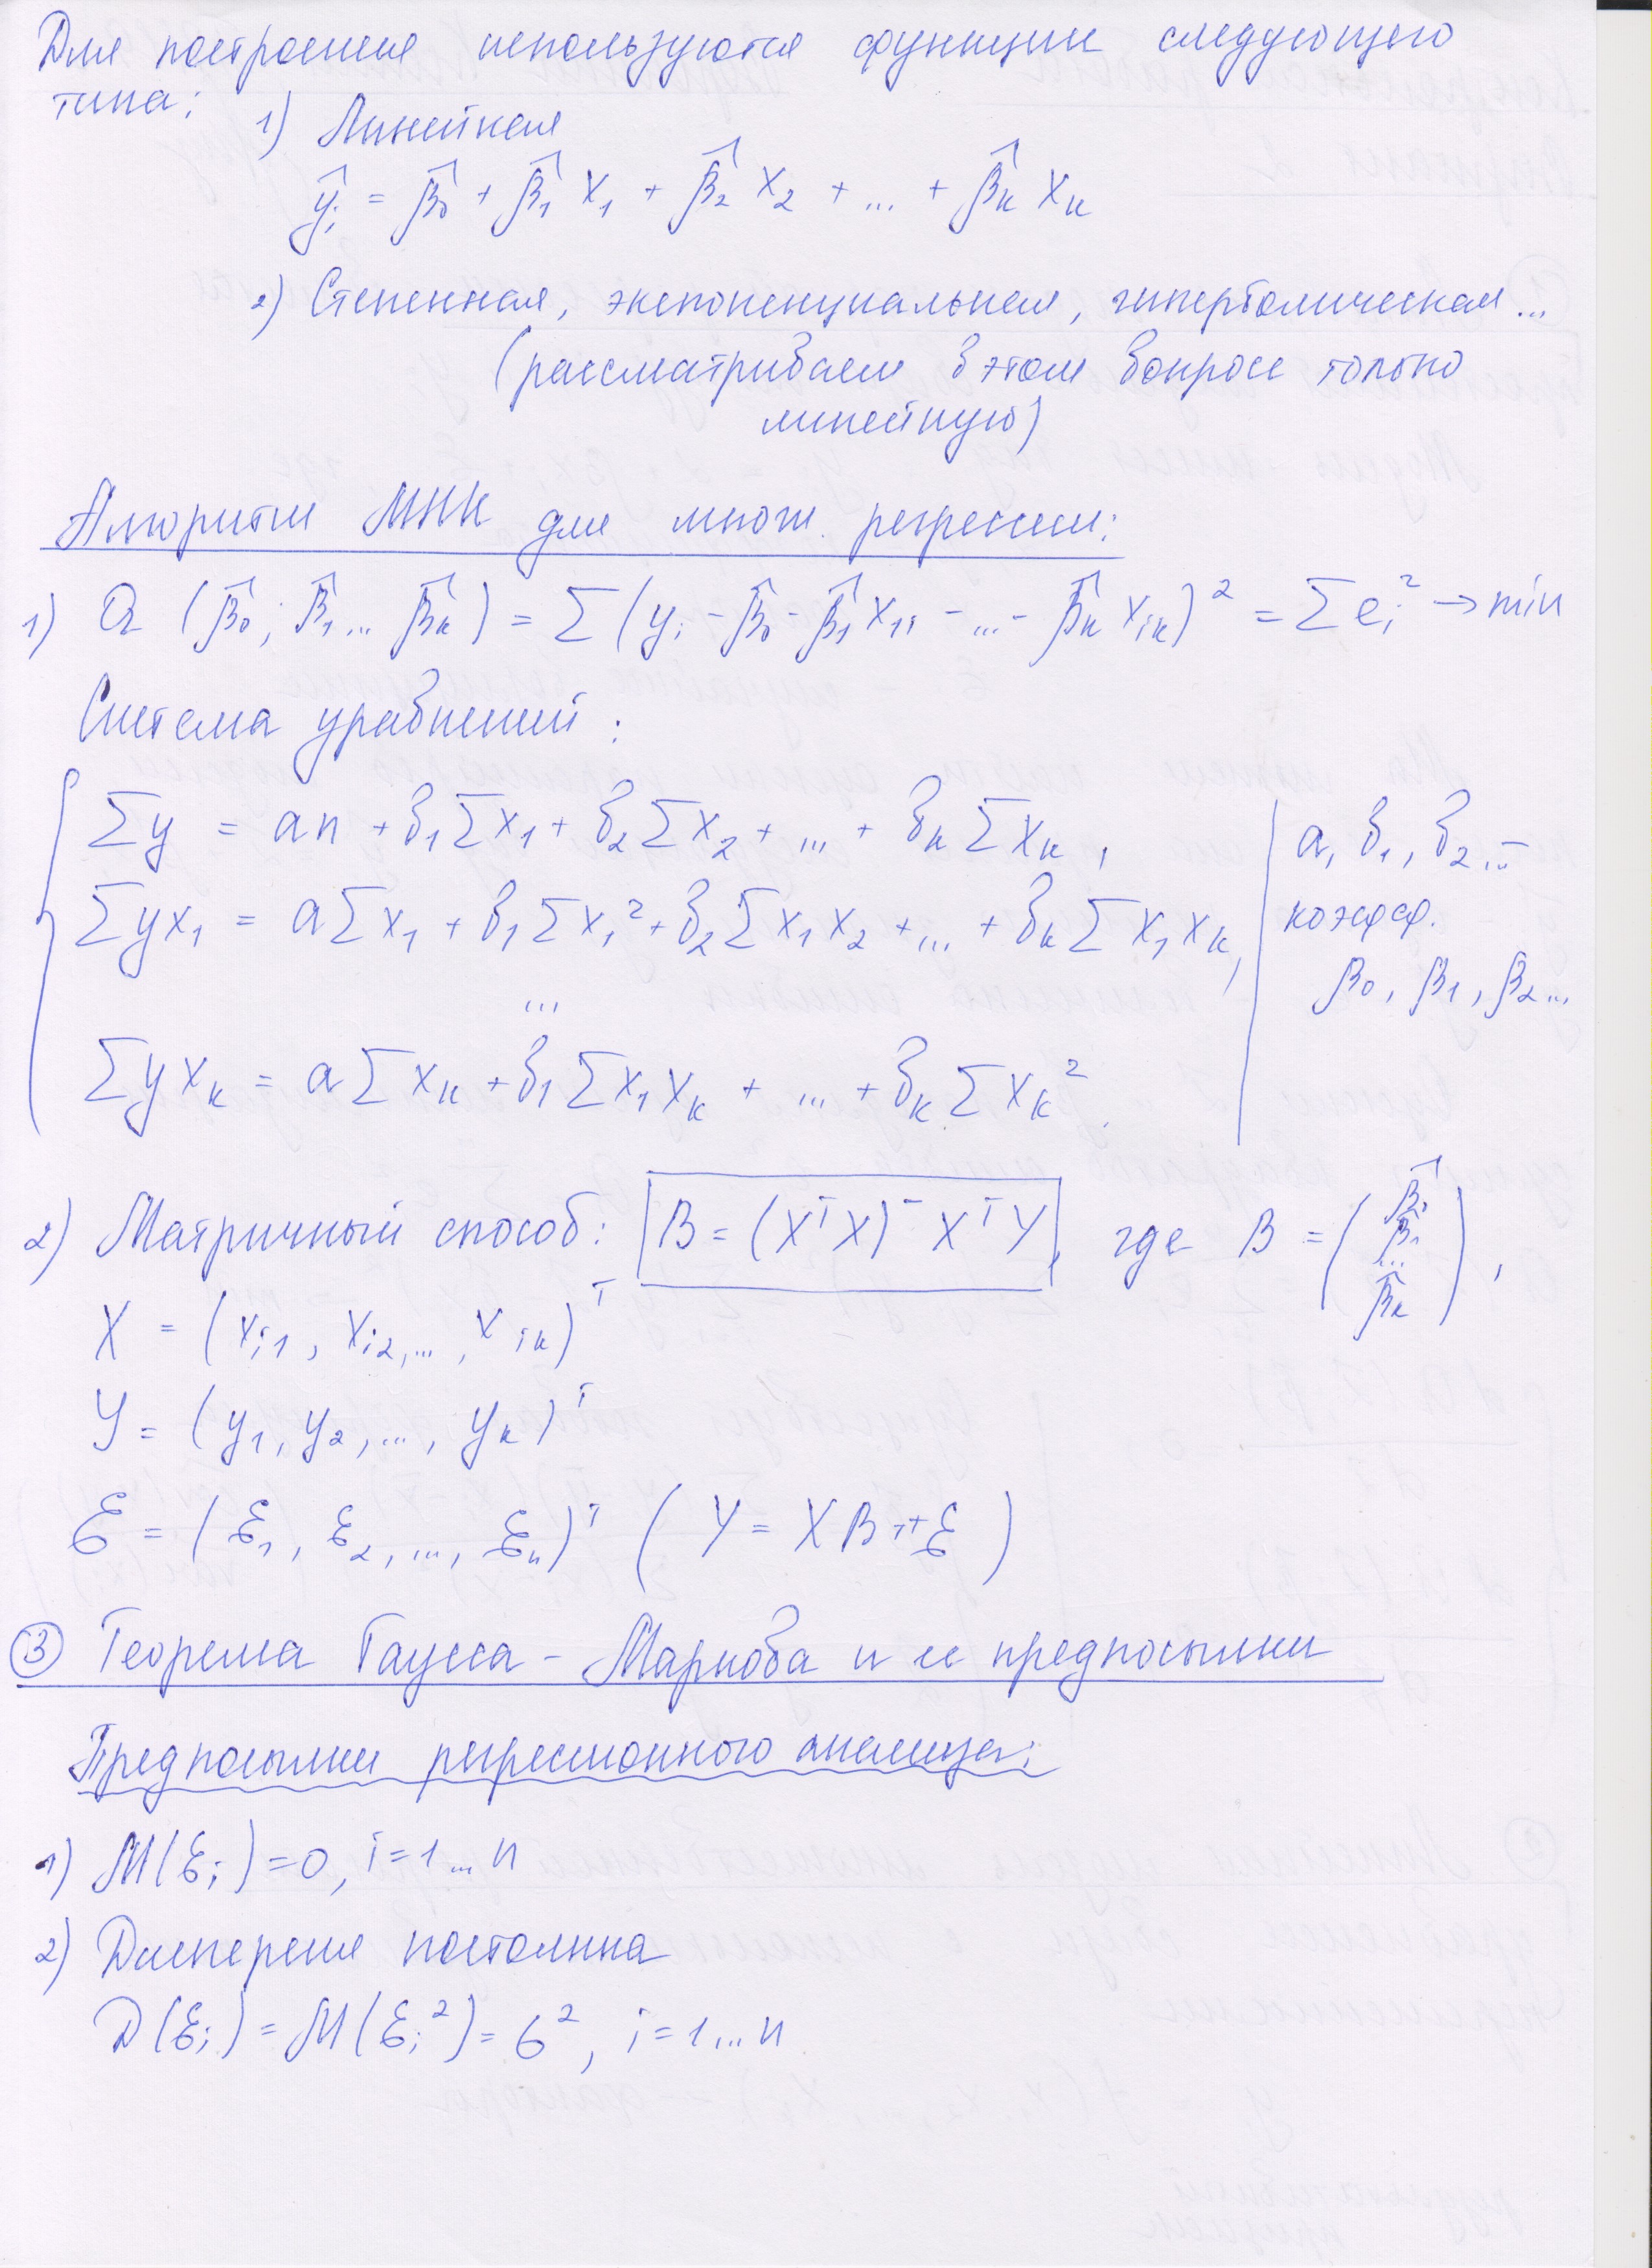 Для построения используются функции следующего
типа:
1) Линейная
ŷᵢ = β̂₀ + β̂₁ x₁ + β̂₂ x₂ + ... + β̂ₖ xₖ
2) Степенная, экспоненциальная, гиперболическая ...
(рассматриваем в этом вопросе только
линейную)
Алгоритм МНК для множ. регрессии:
1) Q (β̂₀; β̂₁ ... β̂ₖ) = Σ(yᵢ - β̂₀ - β̂₁ x₁ᵢ - ... - β̂ₖ xᵢₖ)² = Σeᵢ² → min
Система уравнений:
Σy = an + b₁Σx₁ + b₂Σx₂ + ... + bₖΣxₖ, | a, b₁, b₂ ... –
Σyx₁ = aΣx₁ + b₁Σx₁² + b₂Σx₁x₂ + ... + bₖΣx₁xₖ, | коэфф.
... | β₀, β₁, β₂ ...
Σyxₖ = aΣxₖ + b₁Σx₁xₖ + ... + bₖΣxₖ².
2) Матричный способ: B = (XᵀX)⁻ XᵀY, где B = (β̂₀ β̂₁ ... β̂ₖ),
X = (xᵢ₁, xᵢ₂, ..., xᵢₖ)ᵀ
Y = (y₁, y₂, ..., yₖ)ᵀ
ε = (ε₁, ε₂, ..., εₙ)ᵀ (Y = XB + ε)
③ Теорема Гаусса - Маркова и ее предпосылки
Предпосылки регрессионного анализа:
1) M(εᵢ) = 0, i = 1 ... n
2) Дисперсия постоянна
D(εᵢ) = M(εᵢ²) = σ², i = 1 ... n